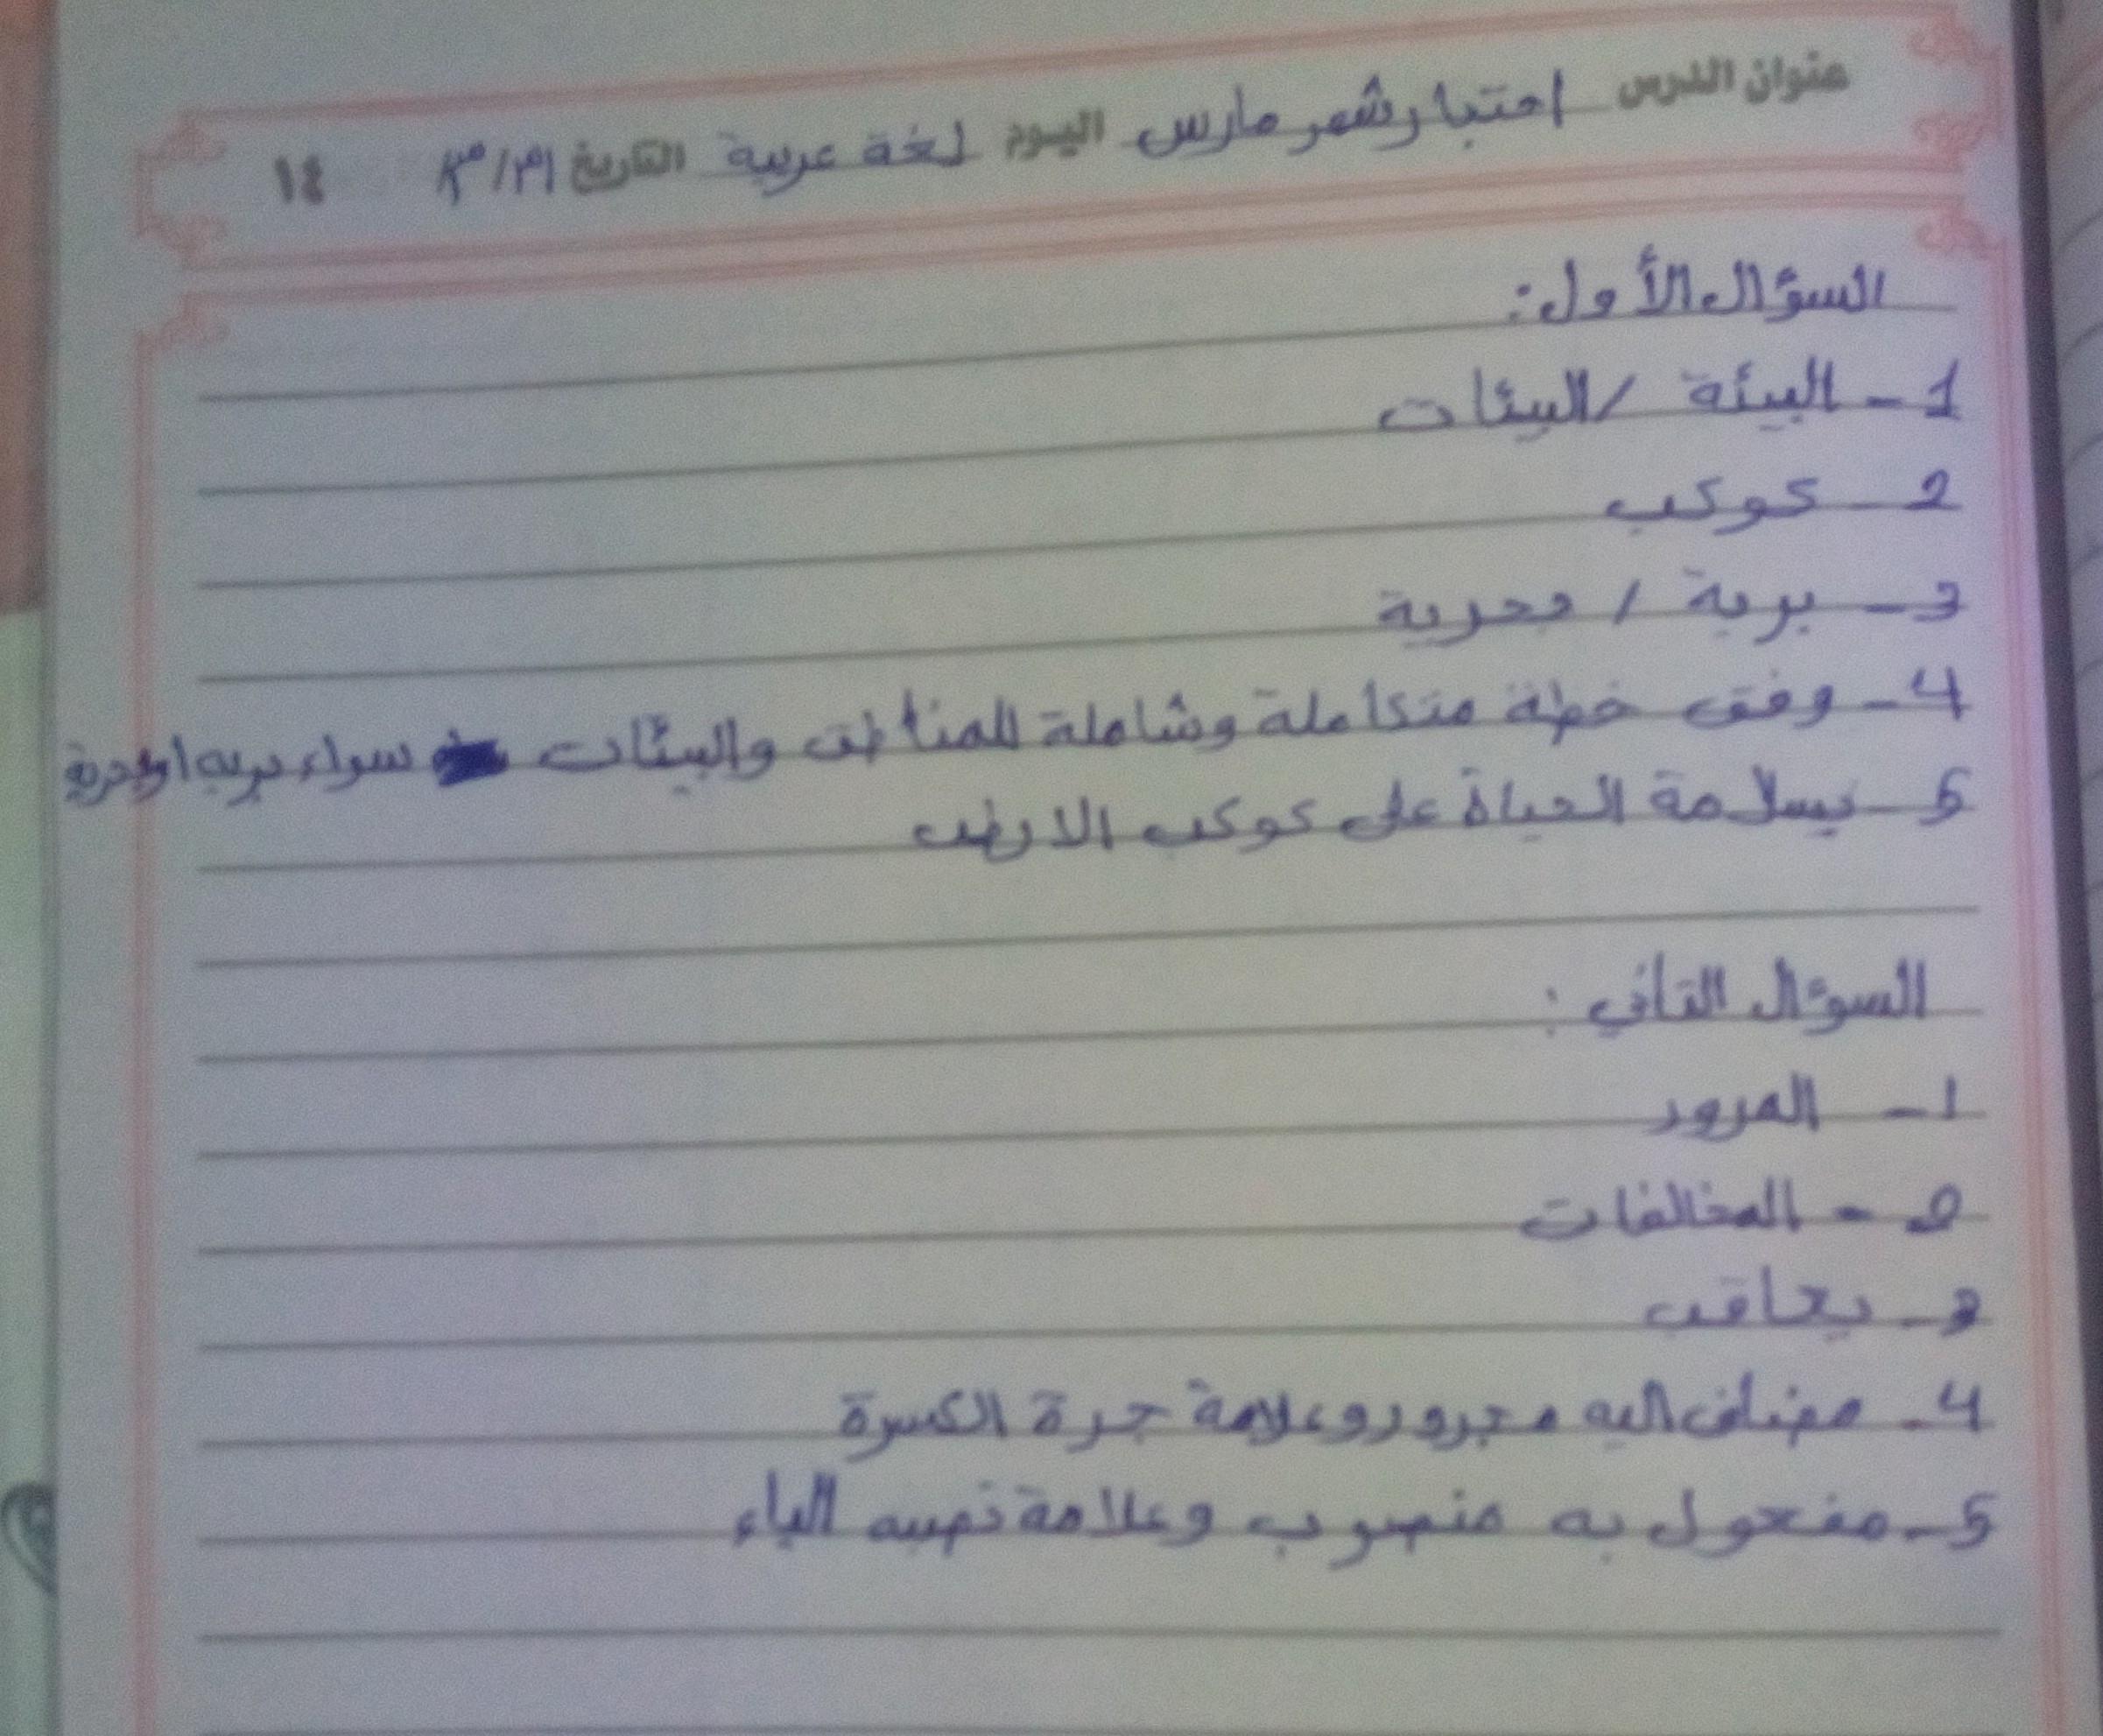 عنوان الدرس اختبار شهر مارس اليوم لغة عربية التاريخ ٣/٣١ ١٤
السؤال الأول:
1- البيئة / البيئات
2- كوكب
3- برية / بحرية
4- وفق خطة متكاملة وشاملة للمناطق والبيئات سواء بريه او بحرية
5- بسلامة الحياة على كوكب الارض
السؤال الثاني :
1- المرور
2- المخالفات
3- يعاقب
4- مضاف اليه مجرور وعلامة جرة الكسرة
5- مفعول به منصوب وعلامة نصبه الياء